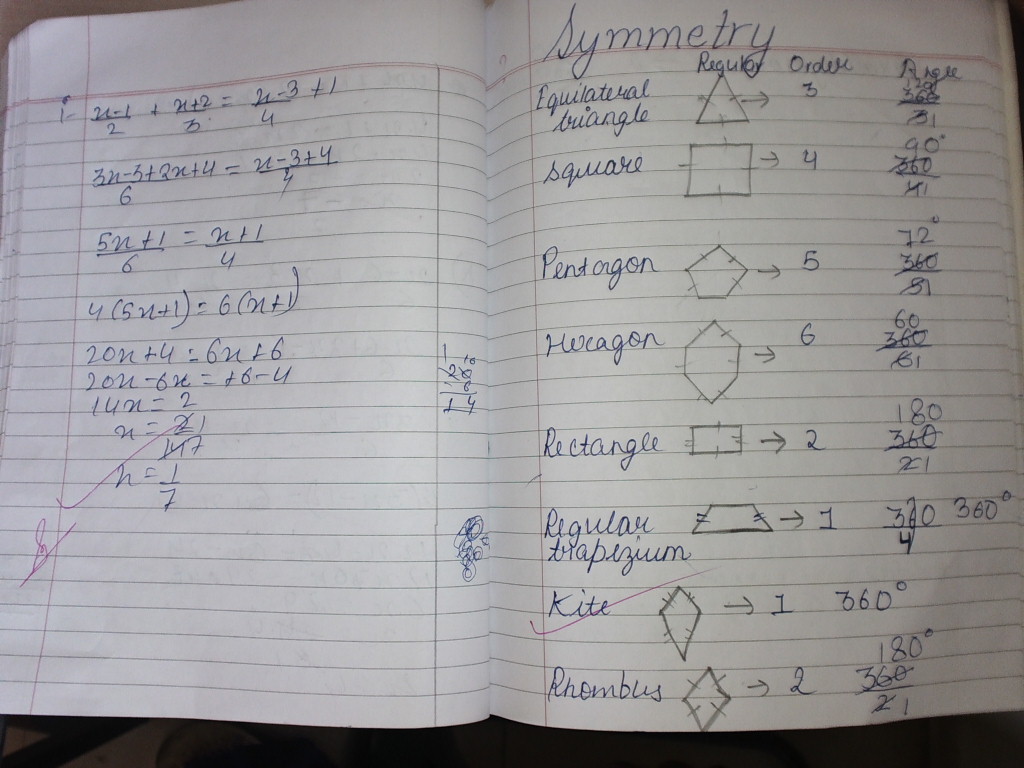 i- x-1/2 + x+2/3 = x-3/4 + 1
3x-3+2x+4/6 = x-3+4/4
5x+1/6 = x+1/4
4(5x+1) = 6(x+1)
20x+4 = 6x+6
20x-6x = +6-4
14x = 2
x = 2 1/14 7
x = 1/7
1 10
20
- 6
1 4
Symmetry
Regular Order Angle
Equilateral triangle → 3 120 360/3 1
Square → 4 90° 360/4 1
Pentagon → 5 72° 360/5 1
Hexagon → 6 60 360/6 1
Rectangle → 2 180 360/2 1
Regular trapezium → 1 360/1 360°
Kite → 1 360°
Rhombus → 2 180° 360/2 1